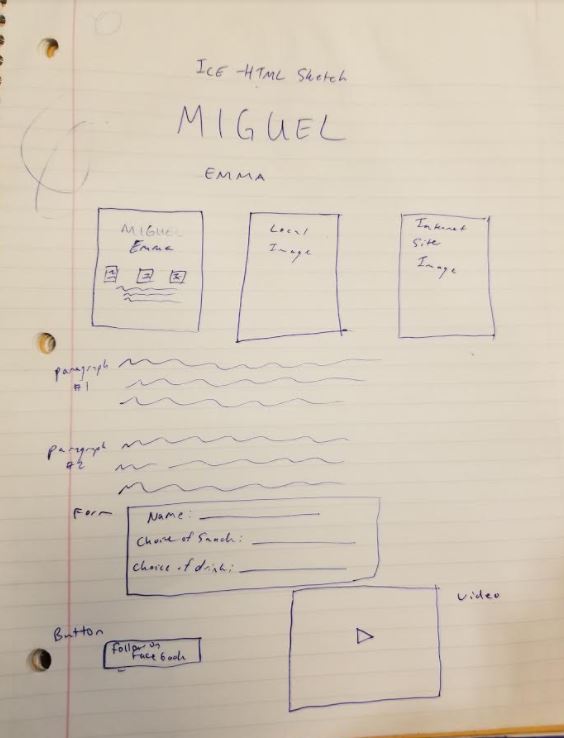 ICE -HTML Sketch
MIGUEL
EMMA
MIGUEL
Emma
Local
Image
Internet
Site
Image
paragraph
#1
paragraph
#2
Form
Name:
Choice of Snack:
Choice of drink:
Button
Follow on
Facebook
Video